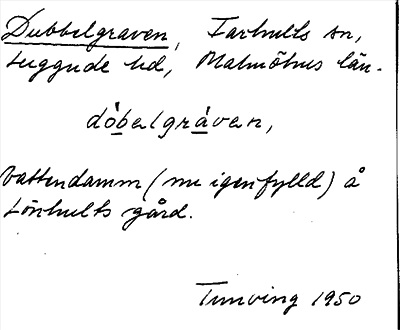 Dubbelgraven, Farhults sn,
Luggude hd, Malmöhus län.
dòbelgràven,
Vattendamm (nu igenfylld) å
Lönhults gård.
1950